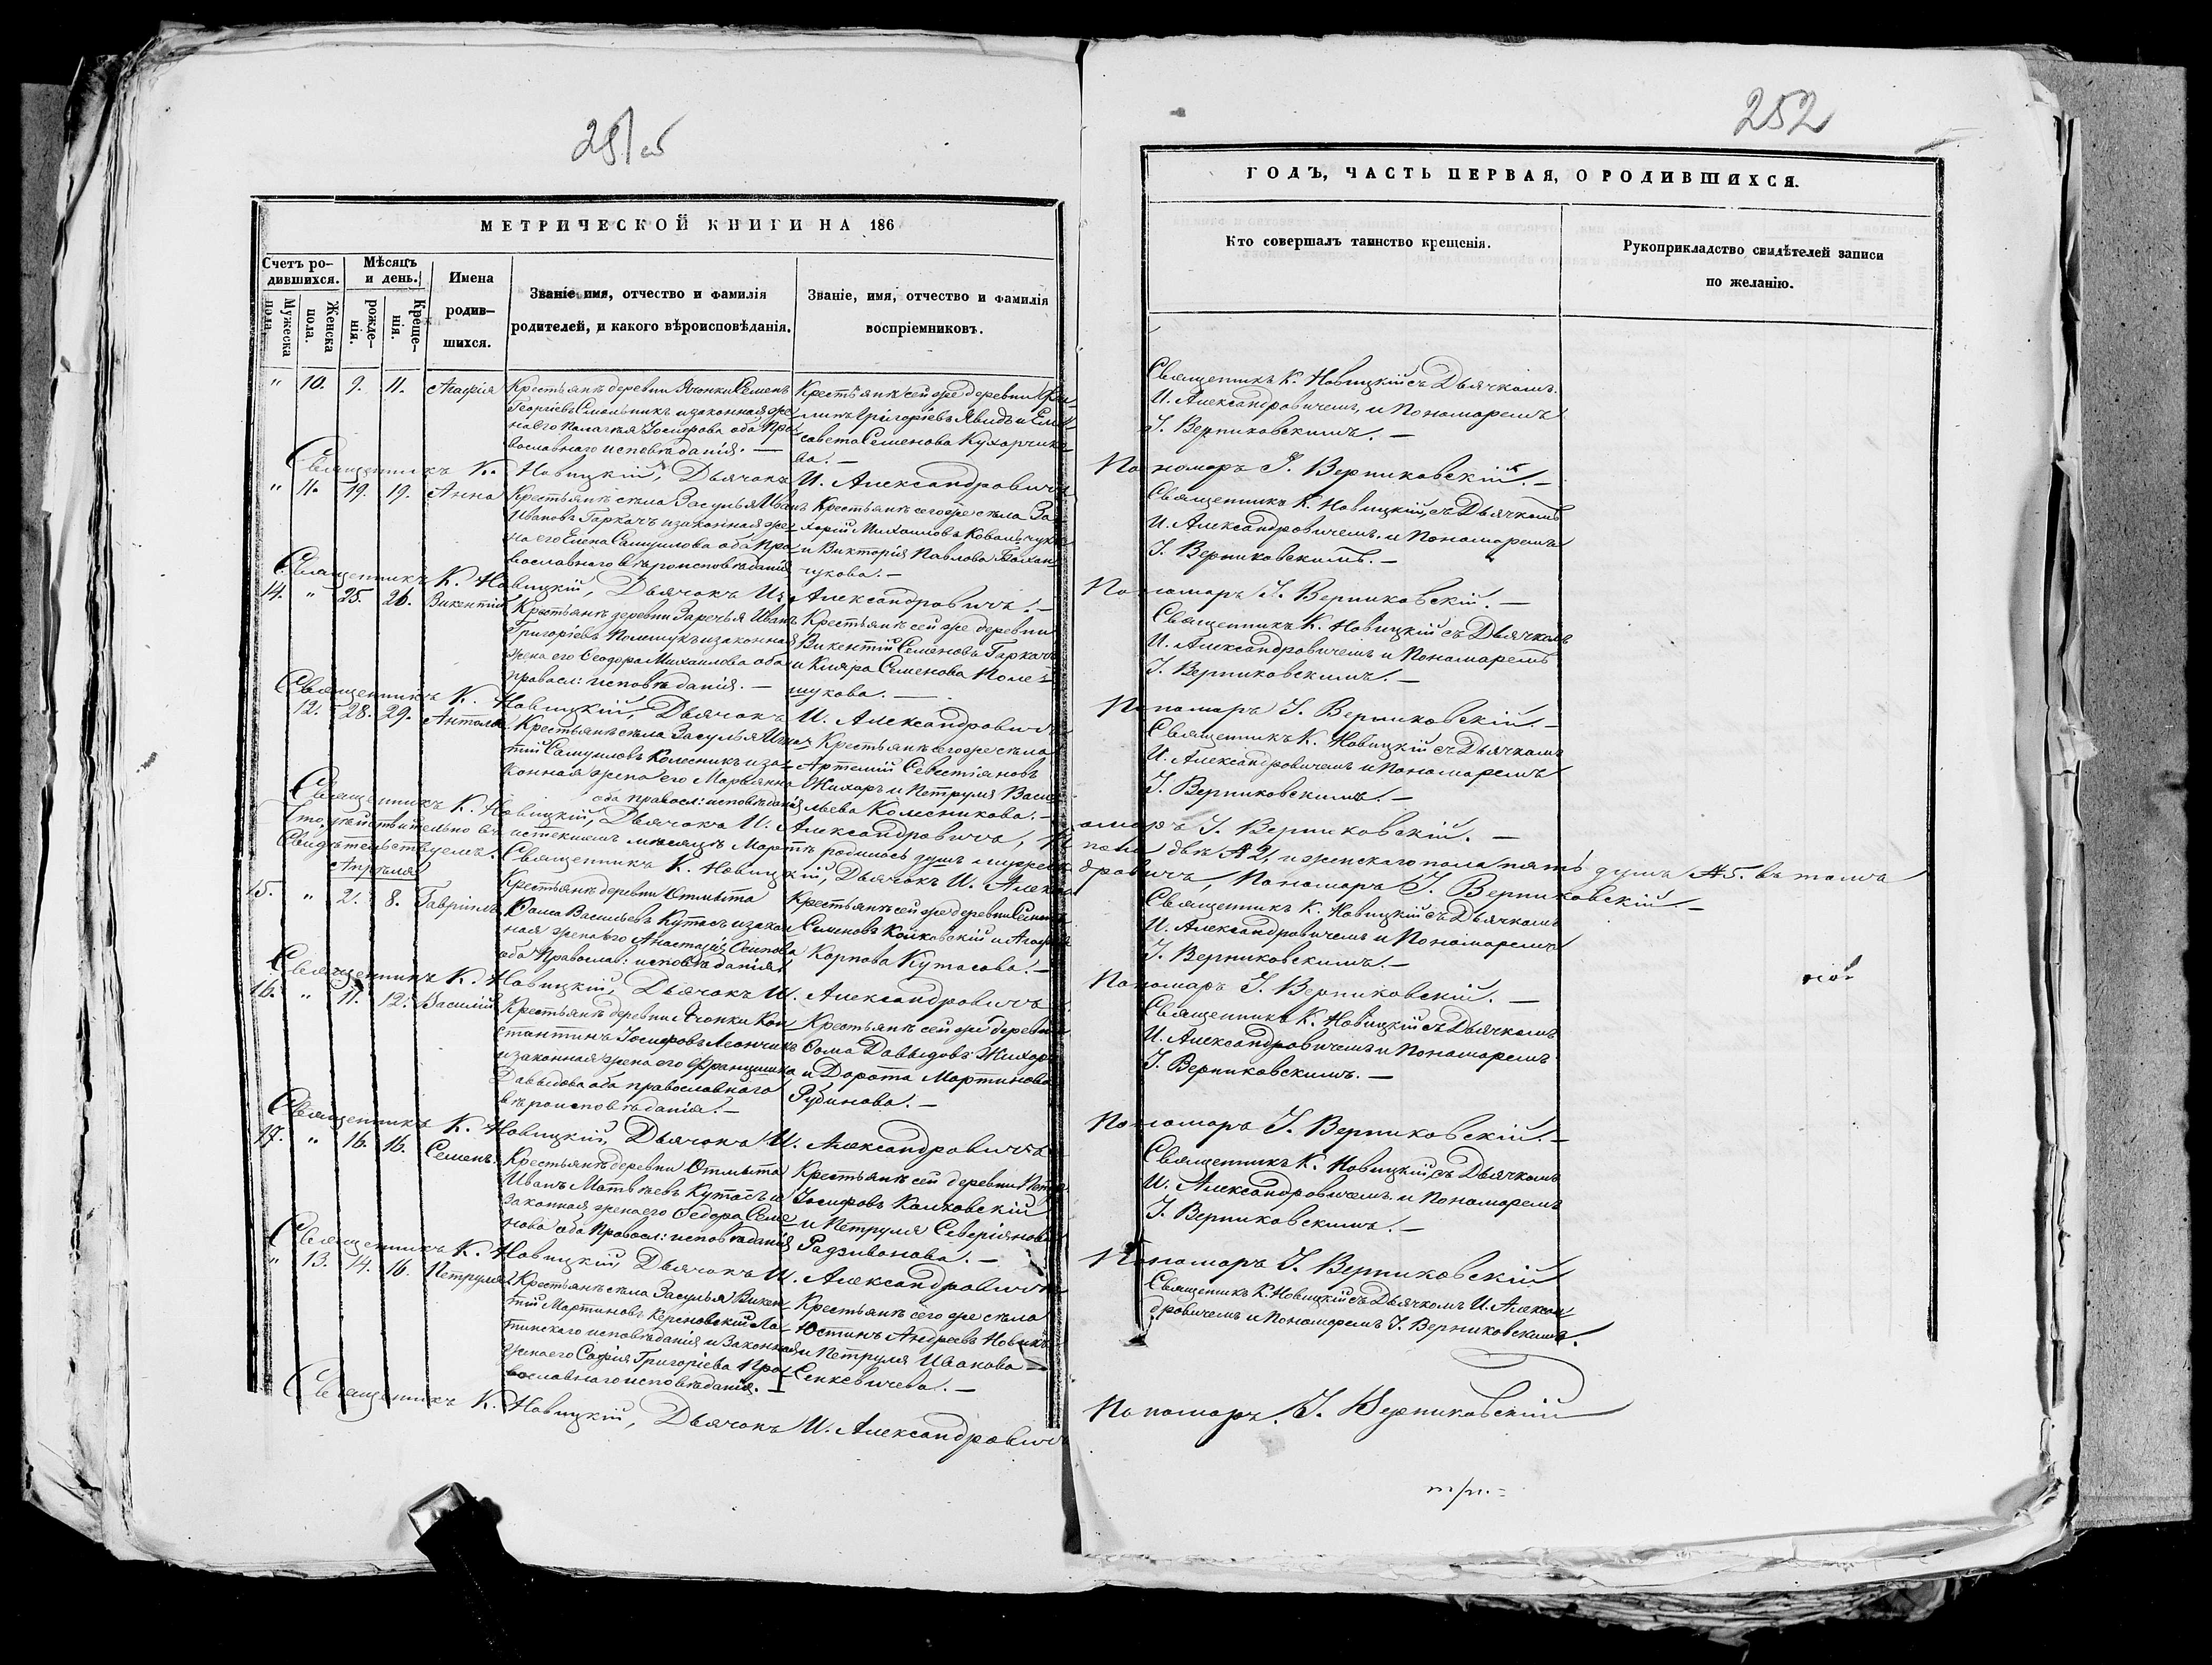 251 об
252
МЕТРИЧЕСКОЙ КНИГИ НА 186
ГОДЪ, ЧАСТЬ ПЕРВАЯ, О РОДИВШИХСЯ.
Счетъ ро-
дившихся.
Мужеска
пола.
Женска
пола.
Мѣсяцъ
и день.
рожде-
нія.
Креще-
нія.
Имена
родив-
шихся.
Званіе, имя, отчество и фамилія
родителей, и какого вѣроисповѣданія.
Званіе, имя, отчество и фамилія
воспріемниковъ.
Кто совершалъ таинство крещенія.
Рукоприкладство свидѣтелей записи
по желанію.
" 10. 9. 11. Агафія
Крестьянъ деревни Ячонки Семенъ
Георгіевъ Смольникъ и законная же
на его Палагѣя Іосифова оба Пра
вославнаго исповѣданія. —
Крестьянъ сей же деревни
Григоріевъ Явидъ и Ели
савета Семенова Кухарчико
ва. —
Священникъ К. Новицкій съ Дьячкомъ
И. Александровичемъ, и Пономаремъ
І. Верниковскимъ. —
Священникъ К. Новицкій, Дьячокъ И. Александровичъ Пономарь І. Верниковскій. —
" 11. 19. 19. Анна
Крестьянъ села Засулья Иванъ
Ивановъ Гаркачъ и законная же
на его Елена Самуилова оба Пра
вославнаго вѣроисповѣданія
Крестьянъ сего же села За
харій Михаиловъ Ковальчукъ
и Викторія Павлова
чукова. —
Священникъ К. Новицкій, съ Дьячкомъ
И. Александровичемъ и Пономаремъ
І. Верниковскимъ. —
Священникъ К. Новицкій, Дьячокъ И. Александровичъ. — Пономарь І. Верниковскій. —
14. " 25. 26. Викентій
Крестьянъ деревни Заречья Иванъ
Григоріевъ Полещукъ и законная
жена его Ѳеодора Михаилова оба
правосл: исповѣданія. —
Крестьянъ сей же деревни
Викентій Семеновъ Гаркачъ
и Кляра Семенова Поле-
щукова. —
Священникъ К. Новицкій съ Дьячкомъ
И. Александровичемъ и Пономаремъ
І. Верниковскимъ. —
Священникъ К. Новицкій, Дьячокъ И. Александровичъ Пономарь І. Верниковскій. —
12. 28. 29. Антоля
Крестьянъ села Засулья Игна
тій Самуиловъ Колесникъ и за-
конная жена его Марьянна
оба правосл: исповѣданія
Крестьянъ сего же села
Артемій Севестіяновъ
Жихоръ и Петруля Васи
льева Колесникова. —
Священникъ К. Новицкій съ Дьячкомъ
И. Александровичемъ и Пономаремъ
І. Верниковскимъ. —
Священникъ К. Новицкій, Дьячокъ И. Александровичъ, Пономарь І. Верниковскій. —
Что дѣйствительно въ истекшемъ мѣсяцѣ Мартѣ родилось душъ мужеск пола двѣ № 2, и женскаго пола пять душъ № 5. въ томъ
Свидѣтельствуемъ. Священникъ К. Новицкій, Дьячокъ И. Александровичъ, Пономарь І. Верниковскій —
Апрѣля
15. " 2. 8. Гавріилъ
Крестьянъ деревни Отмыта
Ѳома Васильевъ Кутасъ и закон
ная жена его Анастазія Осипова
оба Правосла: исповѣданія
Крестьянъ сей же деревни
Семеновъ Колковскій и Агафія
Карпова Кутасова. —
Священникъ К. Новицкій съ Дьячкомъ
И. Александровичемъ и Пономаремъ
І. Верниковскимъ. —
Священникъ К. Новицкій, Дьячокъ И. Александровичъ Пономарь І. Верниковскій. —
16. " 11. 12. Василій
Крестьянъ деревни Ячонки Кон
стантинъ Іосифовъ Леончикъ
и законная жена его Францишка
Давыдова оба православнаго
вѣроисповѣданія. —
Крестьянъ сей же деревни
Ѳома Давыдовъ Жихоръ
и Дорота Мартинова
Рубинова. —
Священникъ К. Новицкій съ Дьячкомъ
И. Александровичемъ и Пономаремъ
І. Верниковскимъ. —
Священникъ К. Новицкій, Дьячокъ И. Александровичъ Пономарь І. Верниковскій. —
17. " 16. 16. Семенъ.
Крестьянъ деревни Отмыта
Иванъ Матвѣевъ Кутасъ и
законная жена его Ѳедора Семе
нова оба Правосл: исповѣданія
Крестьянъ сей деревни Петръ
Іосифовъ Колковскій
и Петруля Северіянова
Радзивонова. —
Священникъ К. Новицкій съ Дьячкомъ
И. Александровичемъ и Пономаремъ
І. Верниковскимъ. —
Священникъ К. Новицкій, Дьячокъ И. Александровичъ Пономарь І. Верниковскій
" 13. 14. 16. Петруля
Крестьянъ села Засулья Викен
тій Мартиновъ Керсновскій Ла-
тинскаго исповѣданія и законная
жена его Софія Григоріева Пра
вославнаго исповѣданія. —
Крестьянъ сего же села
Юстинъ Андреевъ Новикъ
и Петруля Иванова
Сенкевичева. —
Священникъ К. Новицкій съ Дьячкомъ И. Алексан
дровичемъ и Пономаремъ І. Верниковскимъ.
Священникъ К. Новицкій, Дьячокъ И. Александровичъ Пономарь. І. Верниковскій